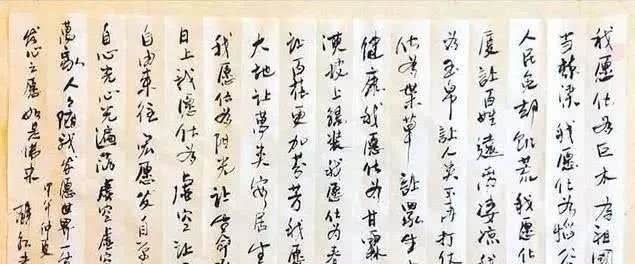 我愿化为巨木为祖國
当栋梁我愿化为稻
人民免却飢荒我愿化
厦让百姓遠离凄凉我
为玉帛让人类不再打仗
化为草让眾生
健康我愿化为甘霖
漠披上绿装我愿化为春
让百花更加芬芳我愿
大地让萬类安居生
我愿化为阳光让生命
日上我愿化为虚空让
自由来往宏愿发自
自心光心光遍满虚空虚空
萬众人人随我发愿世界一
发心之愿如是
甲午仲夏